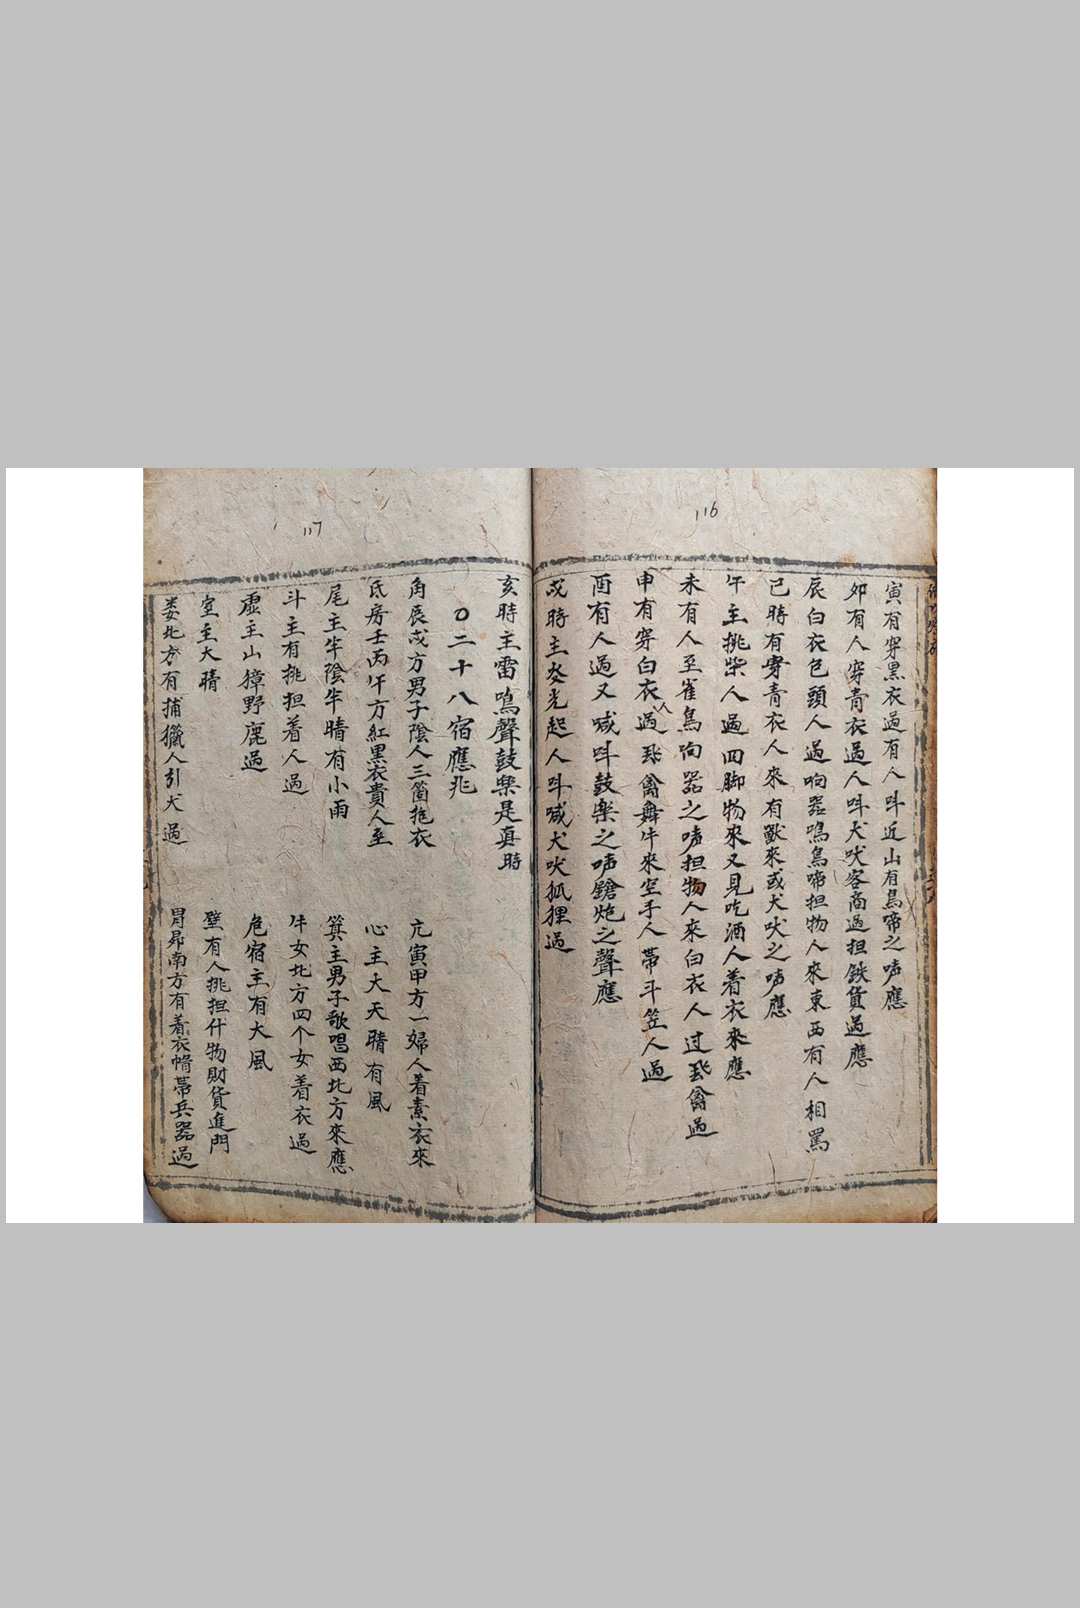 116
寅有穿黑衣過有人呌近山有鳥啼之声應
夘有人穿青衣過人呌犬吠客商過担鉄貨過應
辰白衣包頭人過响器鳴鳥啼担物人來東西有人相罵
巳時有穿青衣人來有獸來或犬吠之声應
午主挑柴人過四脚物來又見吃酒人着衣來應
未有人至雀鳥响器之声担物人來白衣人过飛禽過
申有穿白衣人過飛禽舞牛來空手人帶斗笠人過
酉有人過又喊呌鼓楽之声鎗炮之聲應
戌時主火光起人呌喊犬吠狐狸過
117
亥時主雷鳴聲鼓楽是真時
〇二十八宿應兆
角辰戌方男子陰人三箇抱衣 亢寅甲方一婦人着素衣來
氐房壬丙午方紅黒衣貴人至 心主大天晴有風
尾主半陰半晴有小雨 箕主男子歌唱西北方來應
斗主有挑担着人過 牛女北方四个女着衣過
虛主山獐野鹿過 危宿主有大風
室主大晴 壁有人挑担什物財貨進門
娄北方有捕獵人引犬過 胃昴南方有着衣帶兵器過